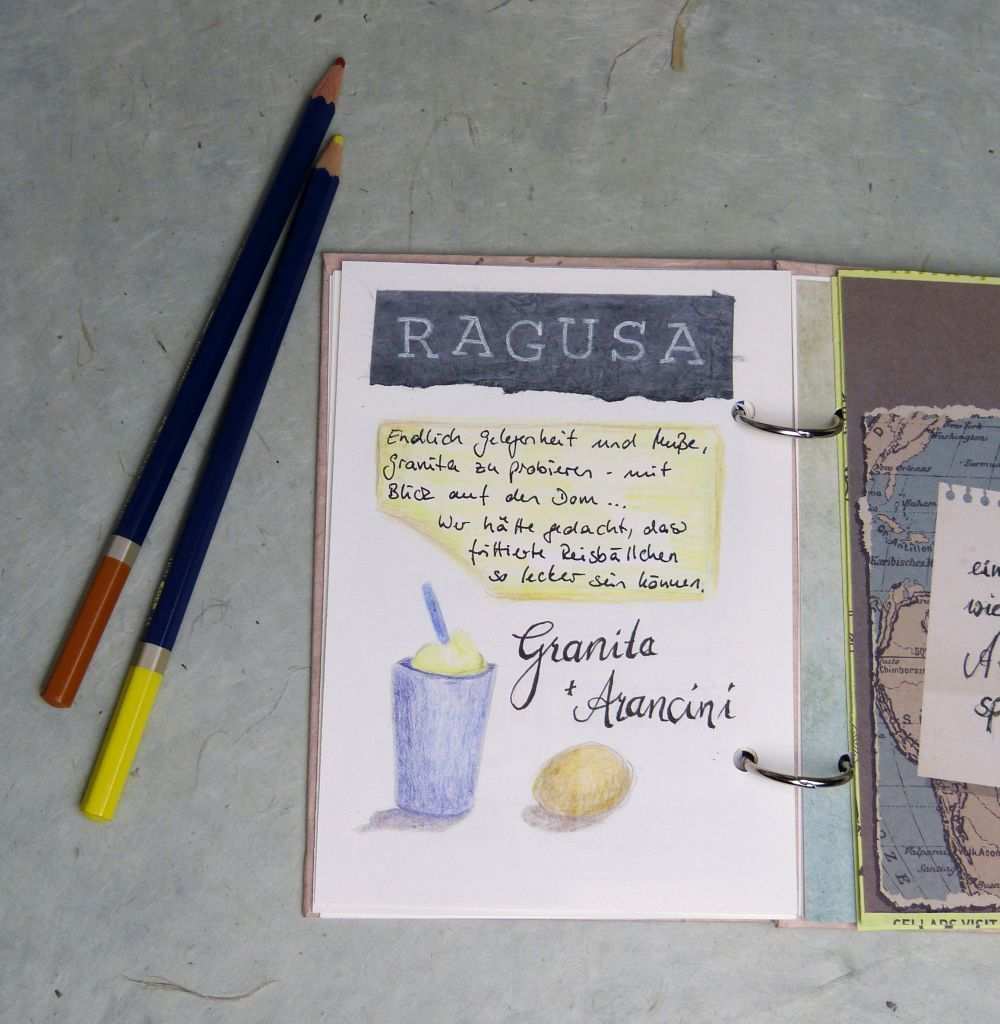 RAGUSA
Endlich Gelegenheit und Muße,
Granita zu probieren - mit
Blick auf den Dom...
Wer hätte gedacht, dass
frittierte Reisbällchen
so lecker sein können.
Granita
+ Arancini
New York
Washington
New Orleans
Antillen
Karibisches
Chimborasso
ein
wie
A
sp
Valparaiso
CELLARS VISIT